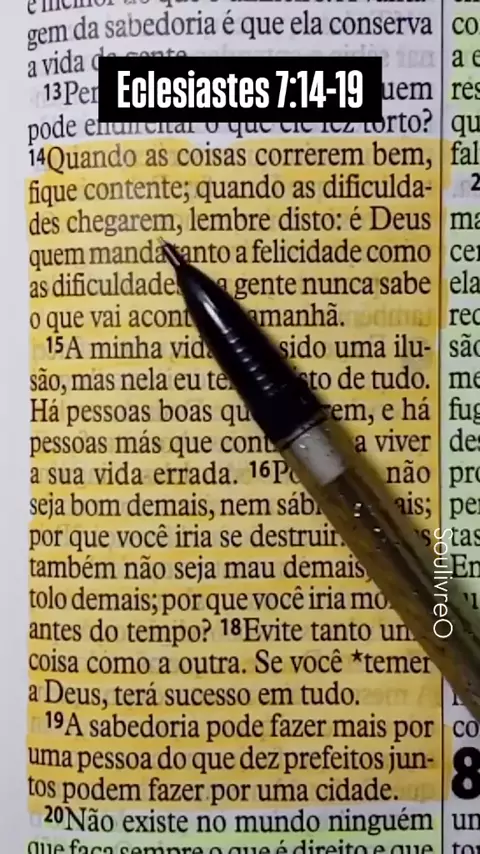 gem da sabedoria é que ela conserva
a vida da gente.
Eclesiastes 7:14-19
13Per uem
pode endireitar o que ele fez torto?
14Quando as coisas correrem bem,
fique contente; quando as dificulda-
des chegarem, lembre disto: é Deus
quem manda tanto a felicidade como
as dificuldades a gente nunca sabe
o que vai acont amanhã.
15A minha vid sido uma ilu-
são, mas nela eu te sto de tudo.
Há pessoas boas qu rem, e há
pessoas más que cont a viver
a sua vida errada. 16Po não
seja bom demais, nem sábi ais;
por que você iria se destruir
também não seja mau demais,
tolo demais; por que você iria mo
antes do tempo? 18Evite tanto um
coisa como a outra. Se você *temer
a Deus, terá sucesso em tudo.
19A sabedoria pode fazer mais por
uma pessoa do que dez prefeitos jun-
tos podem fazer por uma cidade.
20Não existe no mundo ninguém
que faça sempre o que é direito e que
co
a e
res
qu
fal
2
ma
cer
ela
rec
são
me
fug
des
pro
per
tas
En
co
8
un
SoulivreO